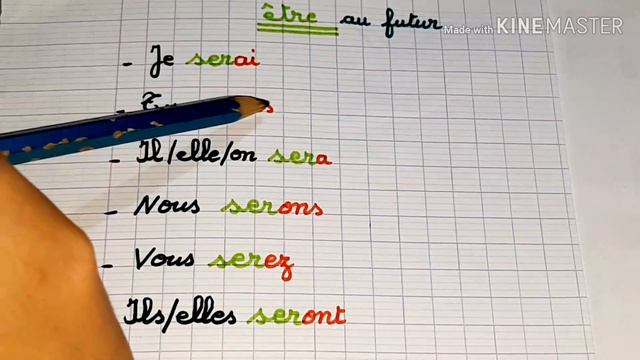 être au futur
Made with KINEMASTER
- Je serai
- s
- Il/elle/on sera
- Nous serons
- Vous serez
Ils/elles seront